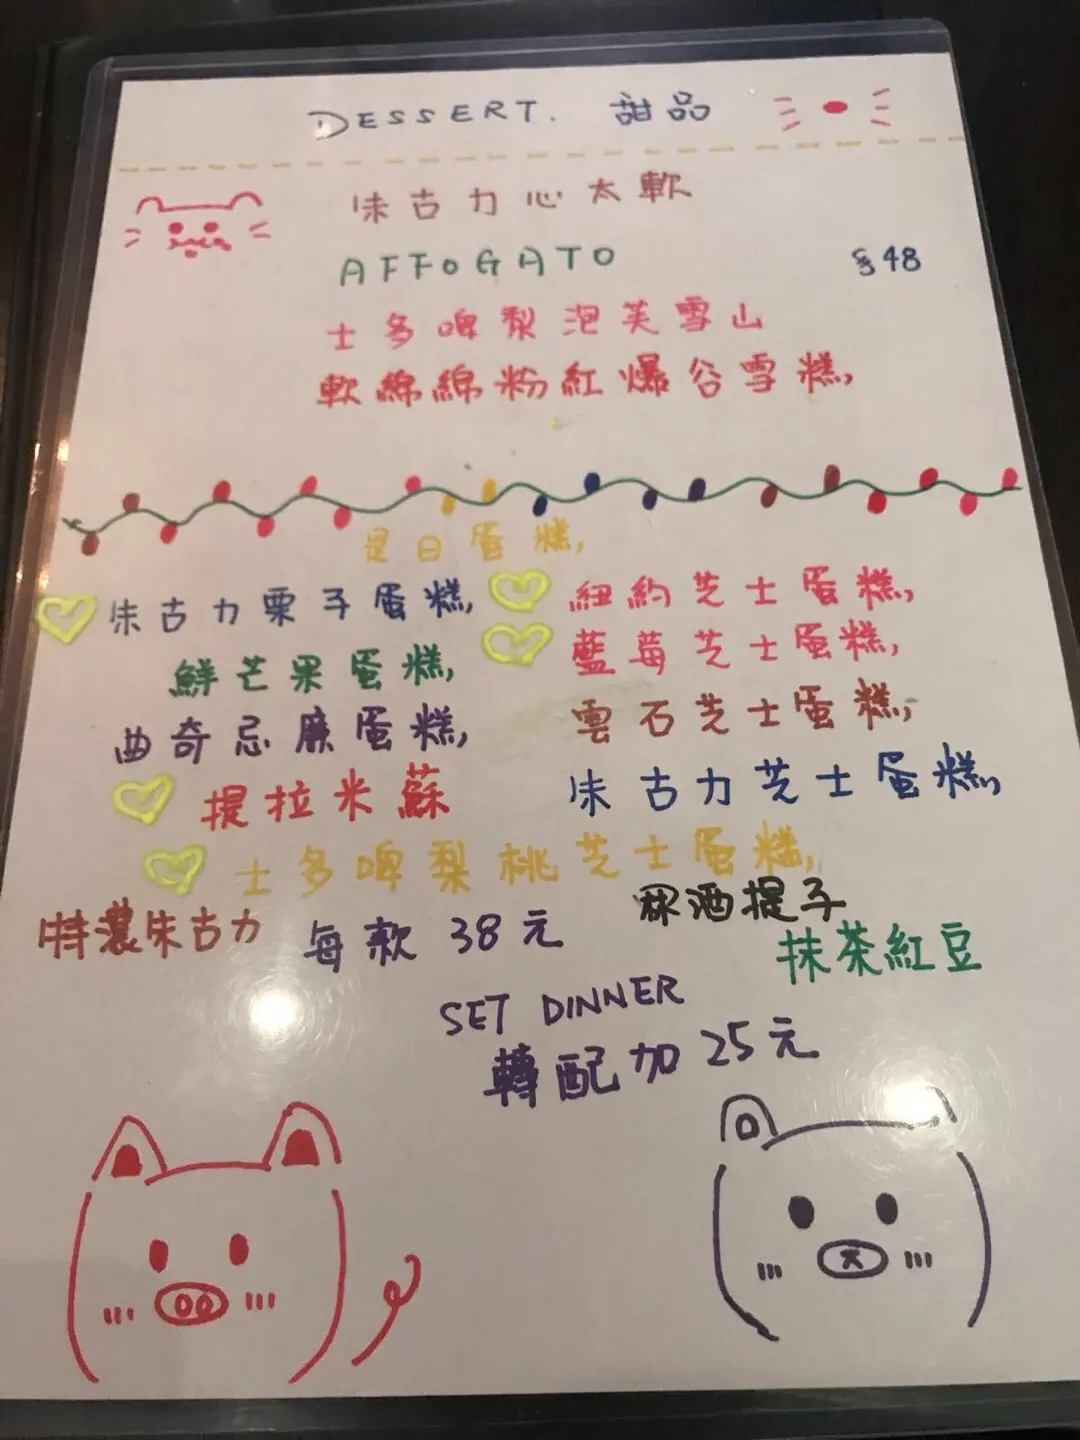 DESSERT. 甜品
朱古力心太軟
AFFOGATO $48
士多啤梨泡芙雪山
軟綿綿粉紅爆谷雪糕
是日蛋糕
朱古力栗子蛋糕 紐約芝士蛋糕
鮮芒果蛋糕 藍莓芝士蛋糕
曲奇忌廉蛋糕 雲石芝士蛋糕
提拉米蘇 朱古力芝士蛋糕
士多啤梨桃芝士蛋糕
特濃朱古力 每款 38元 冧酒提子
抹茶紅豆
SET DINNER
轉配加 25元